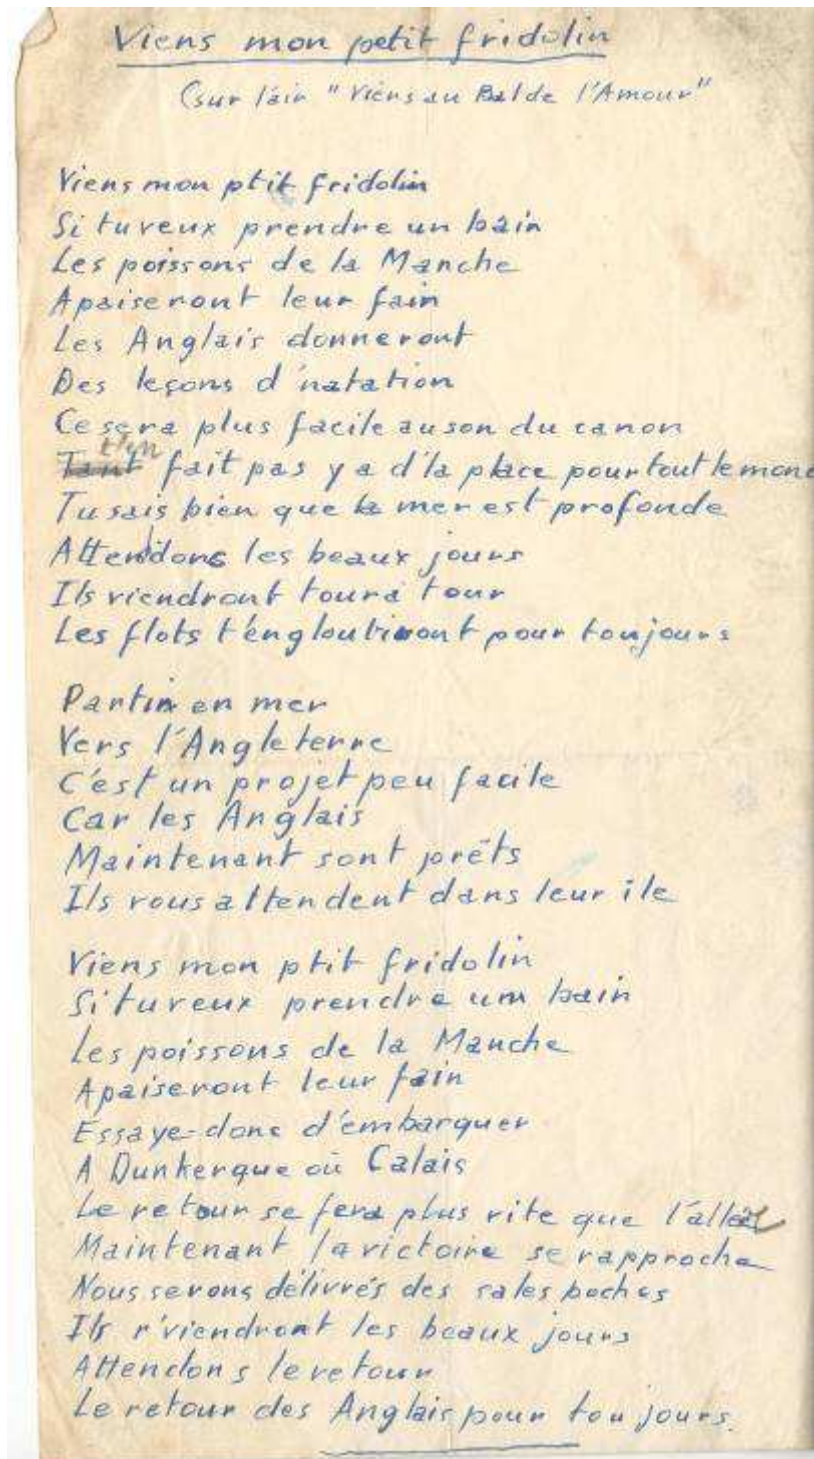 Viens mon petit fridolin
(sur l'air "Viens au Bal de l'Amour"
Viens mon ptit fridolin
Si tu veux prendre un bain
Les poissons de la Manche
Apaiseront leur fain
Les Anglais donneront
Des leçons d'natation
Ce sera plus facile au son du canon
t'en
Tant fait pas y a d'la place pour tout le monde
Tu sais bien que la mer est profonde
Attendons les beaux jours
Ils viendront tour à tour
Les flots t'engloutiront pour toujours
Partir en mer
Vers l'Angleterre
C'est un projet peu facile
Car les Anglais
Maintenant sont prêts
Ils vous attendent dans leur ile
Viens mon ptit fridolin
Si tu veux prendre un bain
Les poissons de la Manche
Apaiseront leur fain
Essaye-donc d'embarquer
A Dunkerque où Calais
Le retour se fera plus vite que l'aller
Maintenant la victoire se rapproche
Nous serons délivrés des sales boches
Ils r'viendront les beaux jours
Attendons le retour
Le retour des Anglais pour toujours.